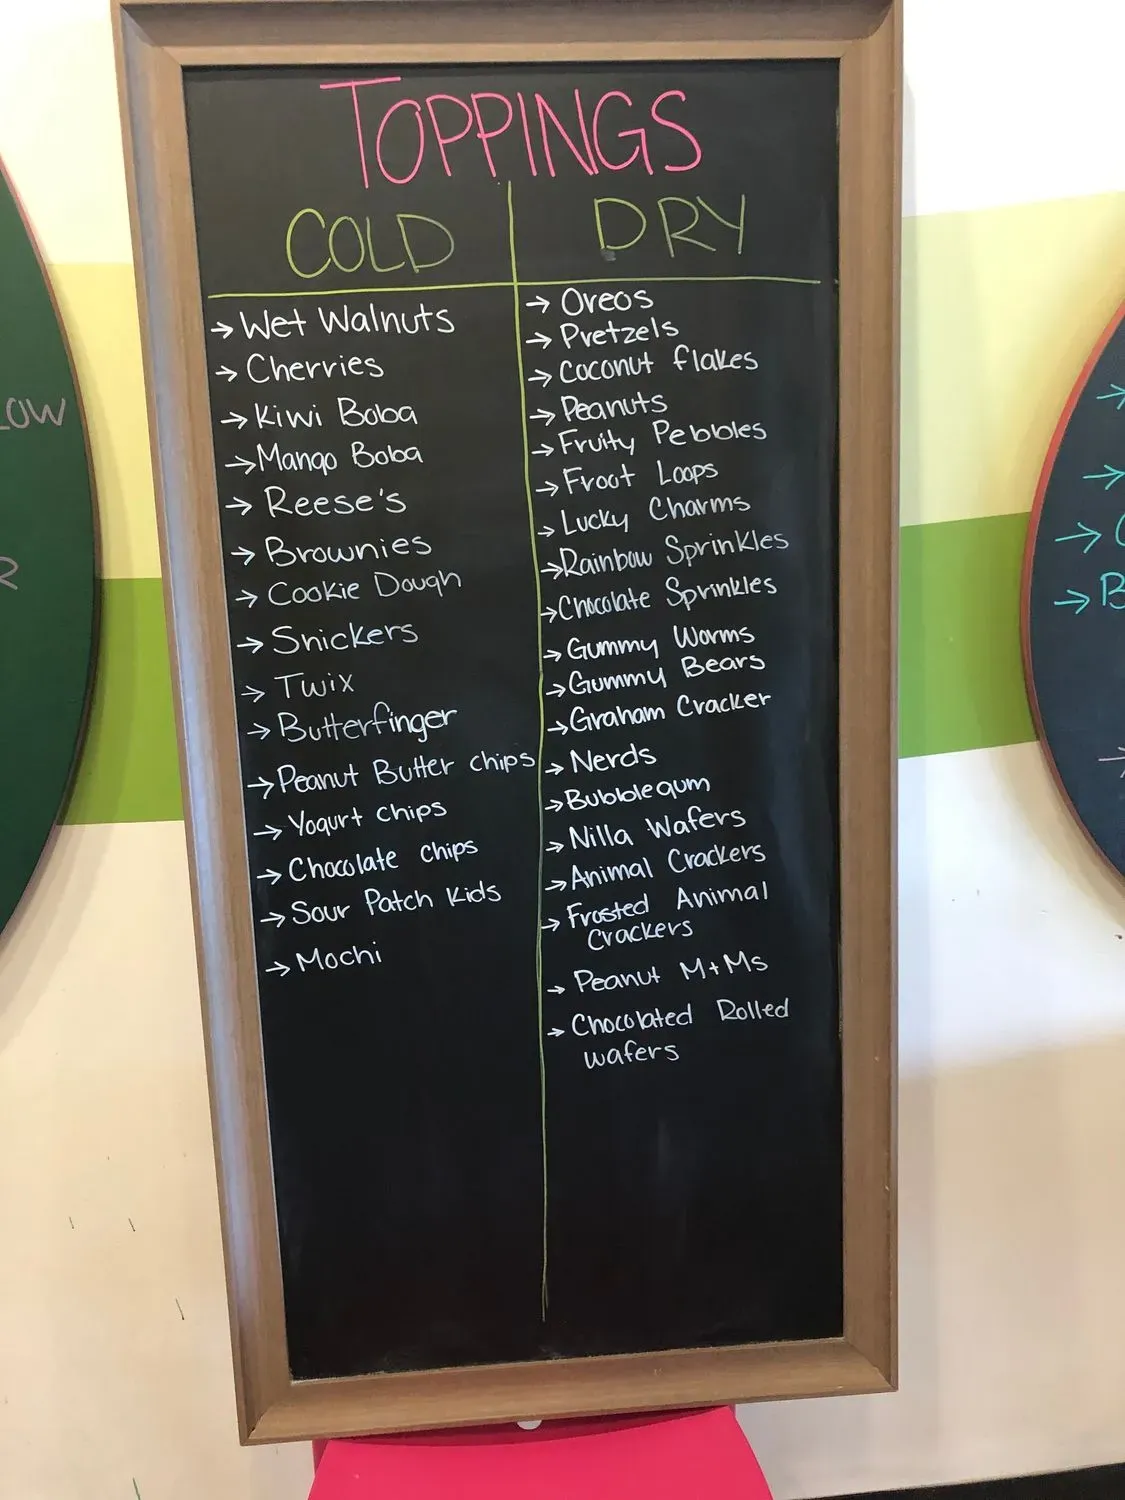 TOPPINGS
COLD
→ Wet Walnuts
→ Cherries
→ Kiwi Boba
→ Mango Boba
→ Reese's
→ Brownies
→ Cookie Dough
→ Snickers
→ Twix
→ Butterfinger
→ Peanut Butter chips
→ Yogurt chips
→ Chocolate chips
→ Sour Patch Kids
→ Mochi
DRY
→ Oreos
→ Pretzels
→ Coconut flakes
→ Peanuts
→ Fruity Pebbles
→ Froot Loops
→ Lucky Charms
→ Rainbow Sprinkles
→ Chocolate Sprinkles
→ Gummy Worms
→ Gummy Bears
→ Graham Cracker
→ Nerds
→ Bubblegum
→ Nilla Wafers
→ Animal Crackers
→ Frosted Animal
Crackers
→ Peanut M+Ms
→ Chocolated Rolled
wafers